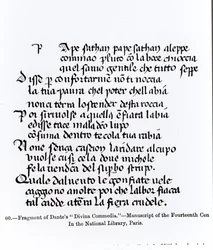 P Ape sathan pape sathan aleppe
comincio pluto con la boce chioccia
quel savio gentile che tutto seppe
Disse p confortarme non ti noccia
la tua paura che poter chelli abia
non ci torra loscender desta roccia
Poi si rivolse a quella enfiata labia
et disse taci maladecto lupo
consuma dentro te cola tua rabia
None senza cagion landare alcupo
vuolse cusi cola dove michele
fe la vendeta del supbo strupo
Quale dal vento le gonfiate vele
caggiono avolte poi che lalbor fiacca
tal cadde ala fiera crudele
60.—Fragment of Dante's "Divina Commedia."—Manuscript of the Fourteenth Cen
In the National Library, Paris.